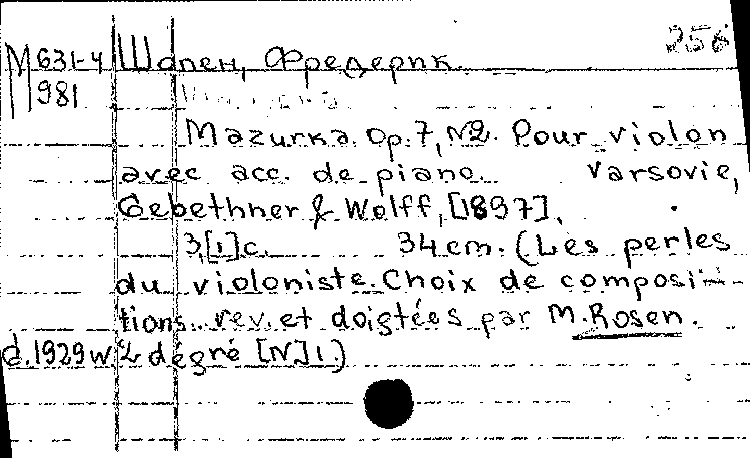 256
М 631-4 Шопен, Фредерик.
981
Mazurka. Op. 7, N2. Pour violon
avec acc. de piano. Varsovie,
Gebethner & Wolff, [1897].
3,[1]с. 34 cm. (Les perles
du violoniste. Choix de composi-
tions rev. et doigtées par M. Rosen.
d.1929 w 2 dégré [N] 1.)